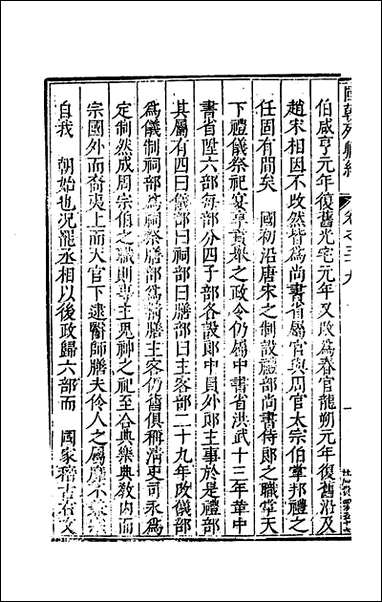 國朝列卿紀 卷之三九
伯咸亨元年復舊光宅元年又改為春官龍朔元年復舊沿及
趙宋相因不改然皆為尚書省屬官與周官大宗伯掌邦禮之
任固有間矣 國初沿唐宋之制設禮部尚書侍郎之職掌天
下禮儀祭祀宴享貢舉之政令仍屬中書省洪武十三年革中
書省陞六部每部分四子部各設郎中員外郎主事於是禮部
其屬有四曰儀部曰祠部曰膳部曰主客部二十九年改儀部
為儀制祠部為祠祭膳部為精膳主客仍舊俱稱清吏司永為
定制然成周宗伯之職則專主鬼神之祀至合典樂典教內而
宗國外而裔夷上而天官下逮醫師膳夫伶人之屬靡不兼綜
自我 朝始也况罷丞相以後政歸六部而 國家稽古右文